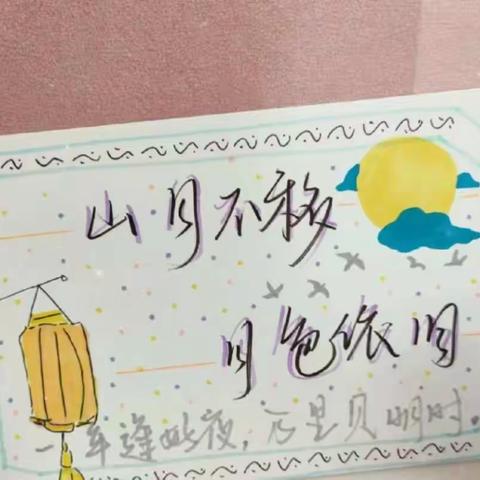 山月不移
月色依旧
一年逢好夜，万里见明时。